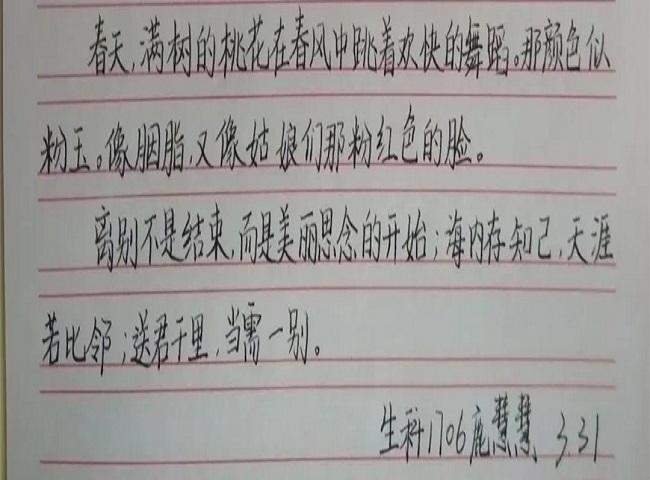 春天,满树的桃花在春风中跳着欢快的舞蹈。那颜色似
粉玉。像胭脂,又像姑娘们那粉红色的脸。
离别不是结束,而是美丽思念的开始;海内存知己,天涯
若比邻;送君千里,当需一别。
生科1706鹿慧慧 3.31